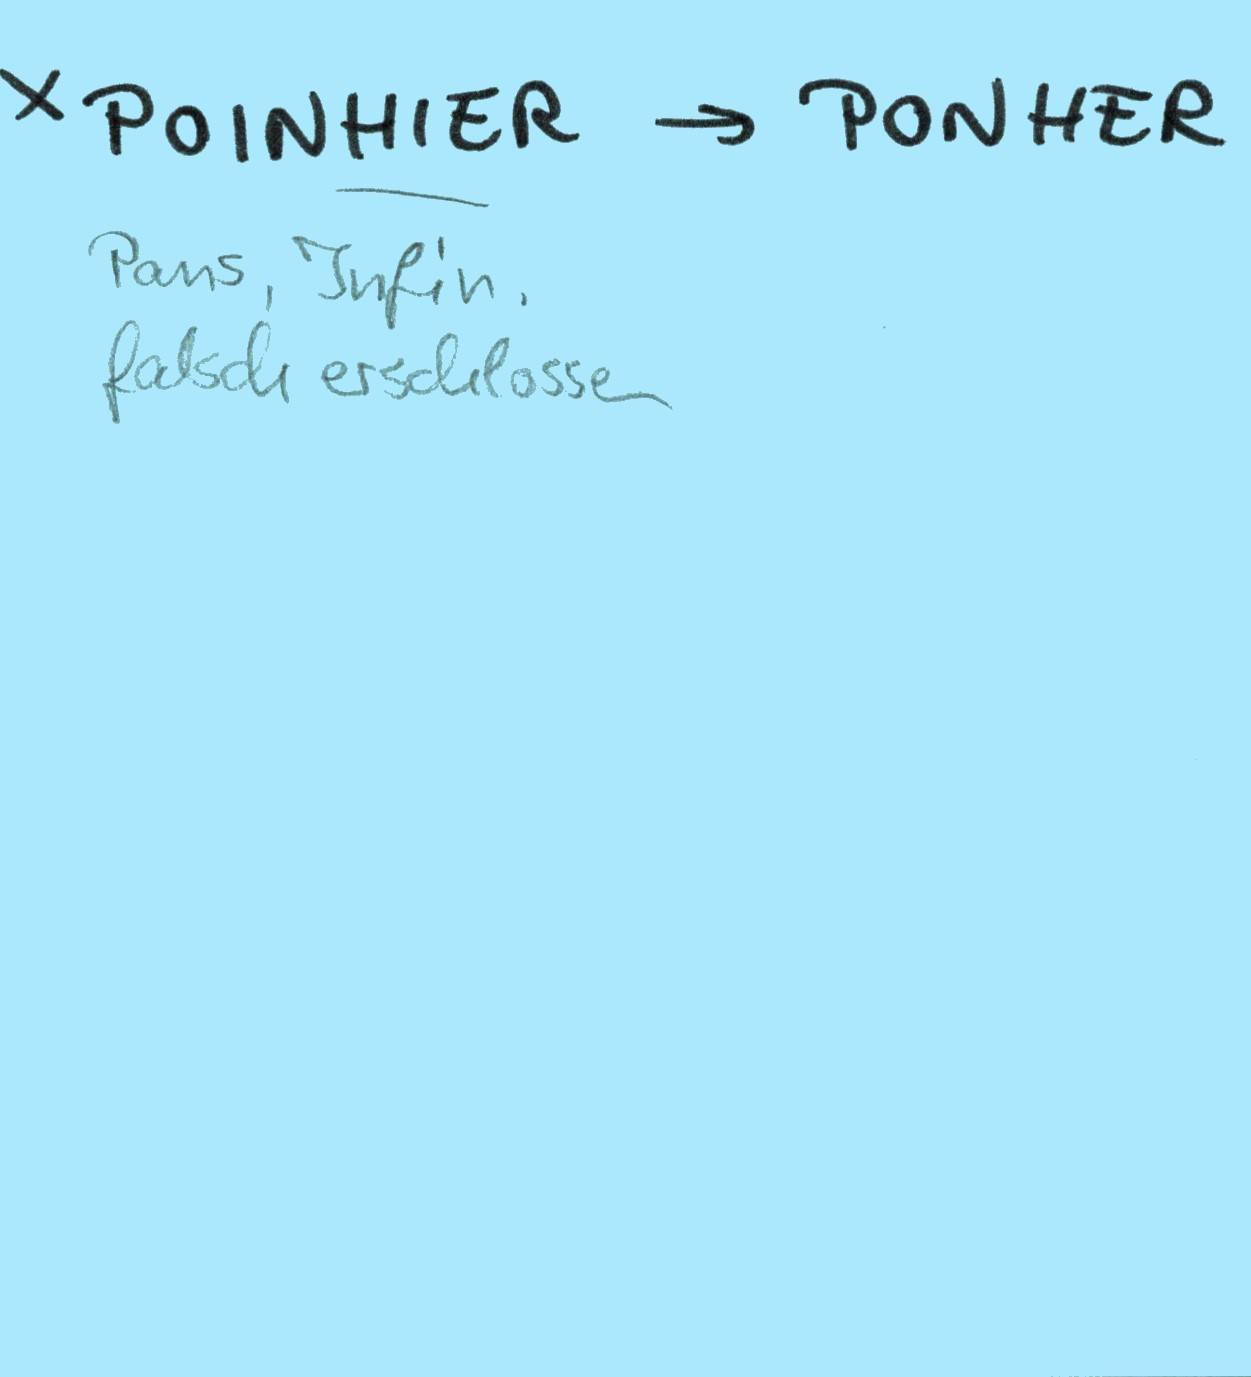 x POINHIER → PONHER
Pans, Infin.
falsch erschlossen